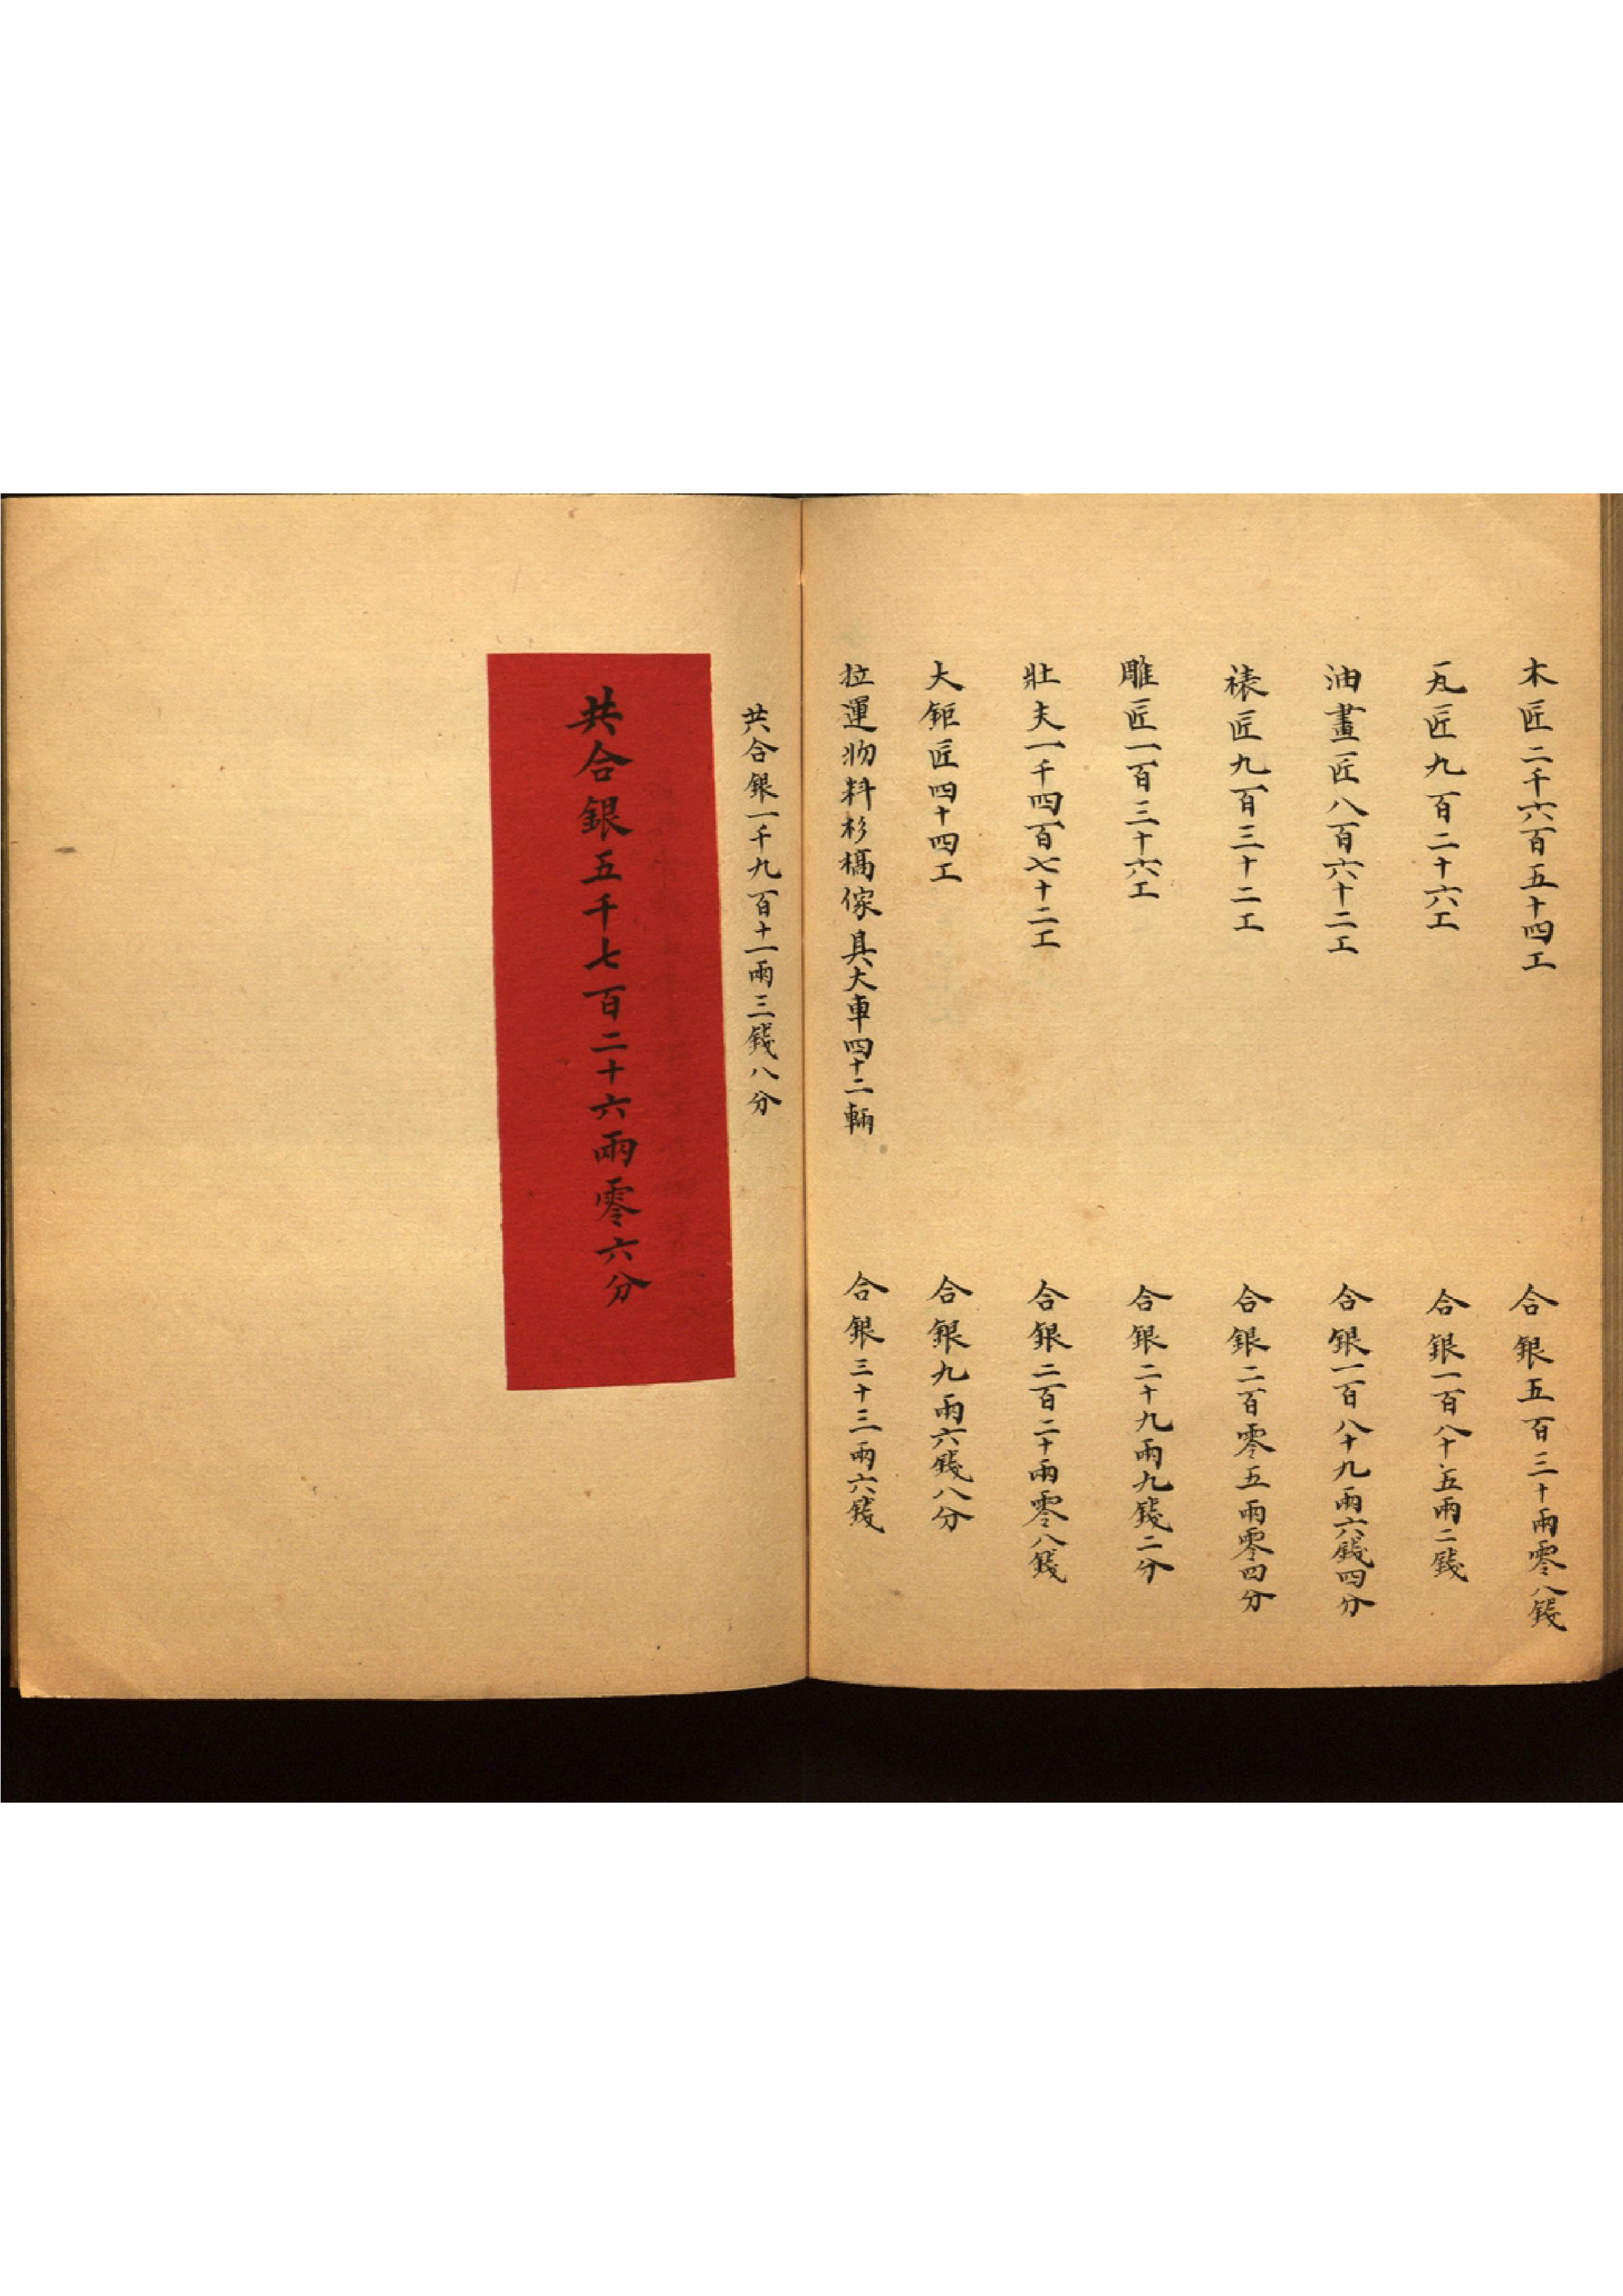 木匠二千六百五十四工 合銀五百三十兩零八錢
瓦匠九百二十六工 合銀一百八十五兩二錢
油畫匠八百六十二工 合銀一百八十九兩六錢四分
裱匠九百三十二工 合銀二百零五兩零四分
雕匠一百三十六工 合銀二十九兩九錢二分
壯夫一千四百七十二工 合銀二百二十兩零八錢
大鉅匠四十四工 合銀九兩六錢八分
拉運物料杉槁傢具大車四十二輛 合銀三十三兩六錢
共合銀一千九百十一兩三錢八分
共合銀五千七百二十六兩零六分